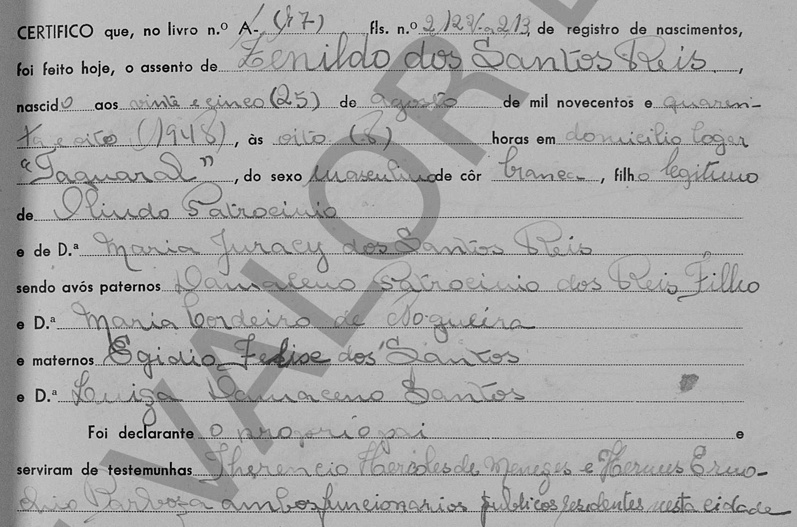 CERTIFICO que, no livro n.º A-(47) fls. n.º 212V.a 213, de registro de nascimentos,
foi feito hoje, o assento de Zenildo dos Santos Reis,
nascido aos vinte e cinco (25) de agosto de mil novecentos e quaren-
ta e oito (1948), às oito (8) horas em domicilio logar
"Taquaral", do sexo masculino de côr branca, filho legitimo
de Olindo Patrocinio
e de D.ª Maria Juracy dos Santos Reis
sendo avós paternos Damaceno Patrocinio dos Reis Filho
e D.ª Maria Cordeiro de Nogueira
e maternos Egidio Felise dos Santos
e D.ª Luiza Damaceno Santos
Foi declarante o proprio pai e
serviram de testemunhas Therencio Hercoles de Menezes e Hermes
Barboza ambos funcionarios publicos residentes nesta cidade
VALOR